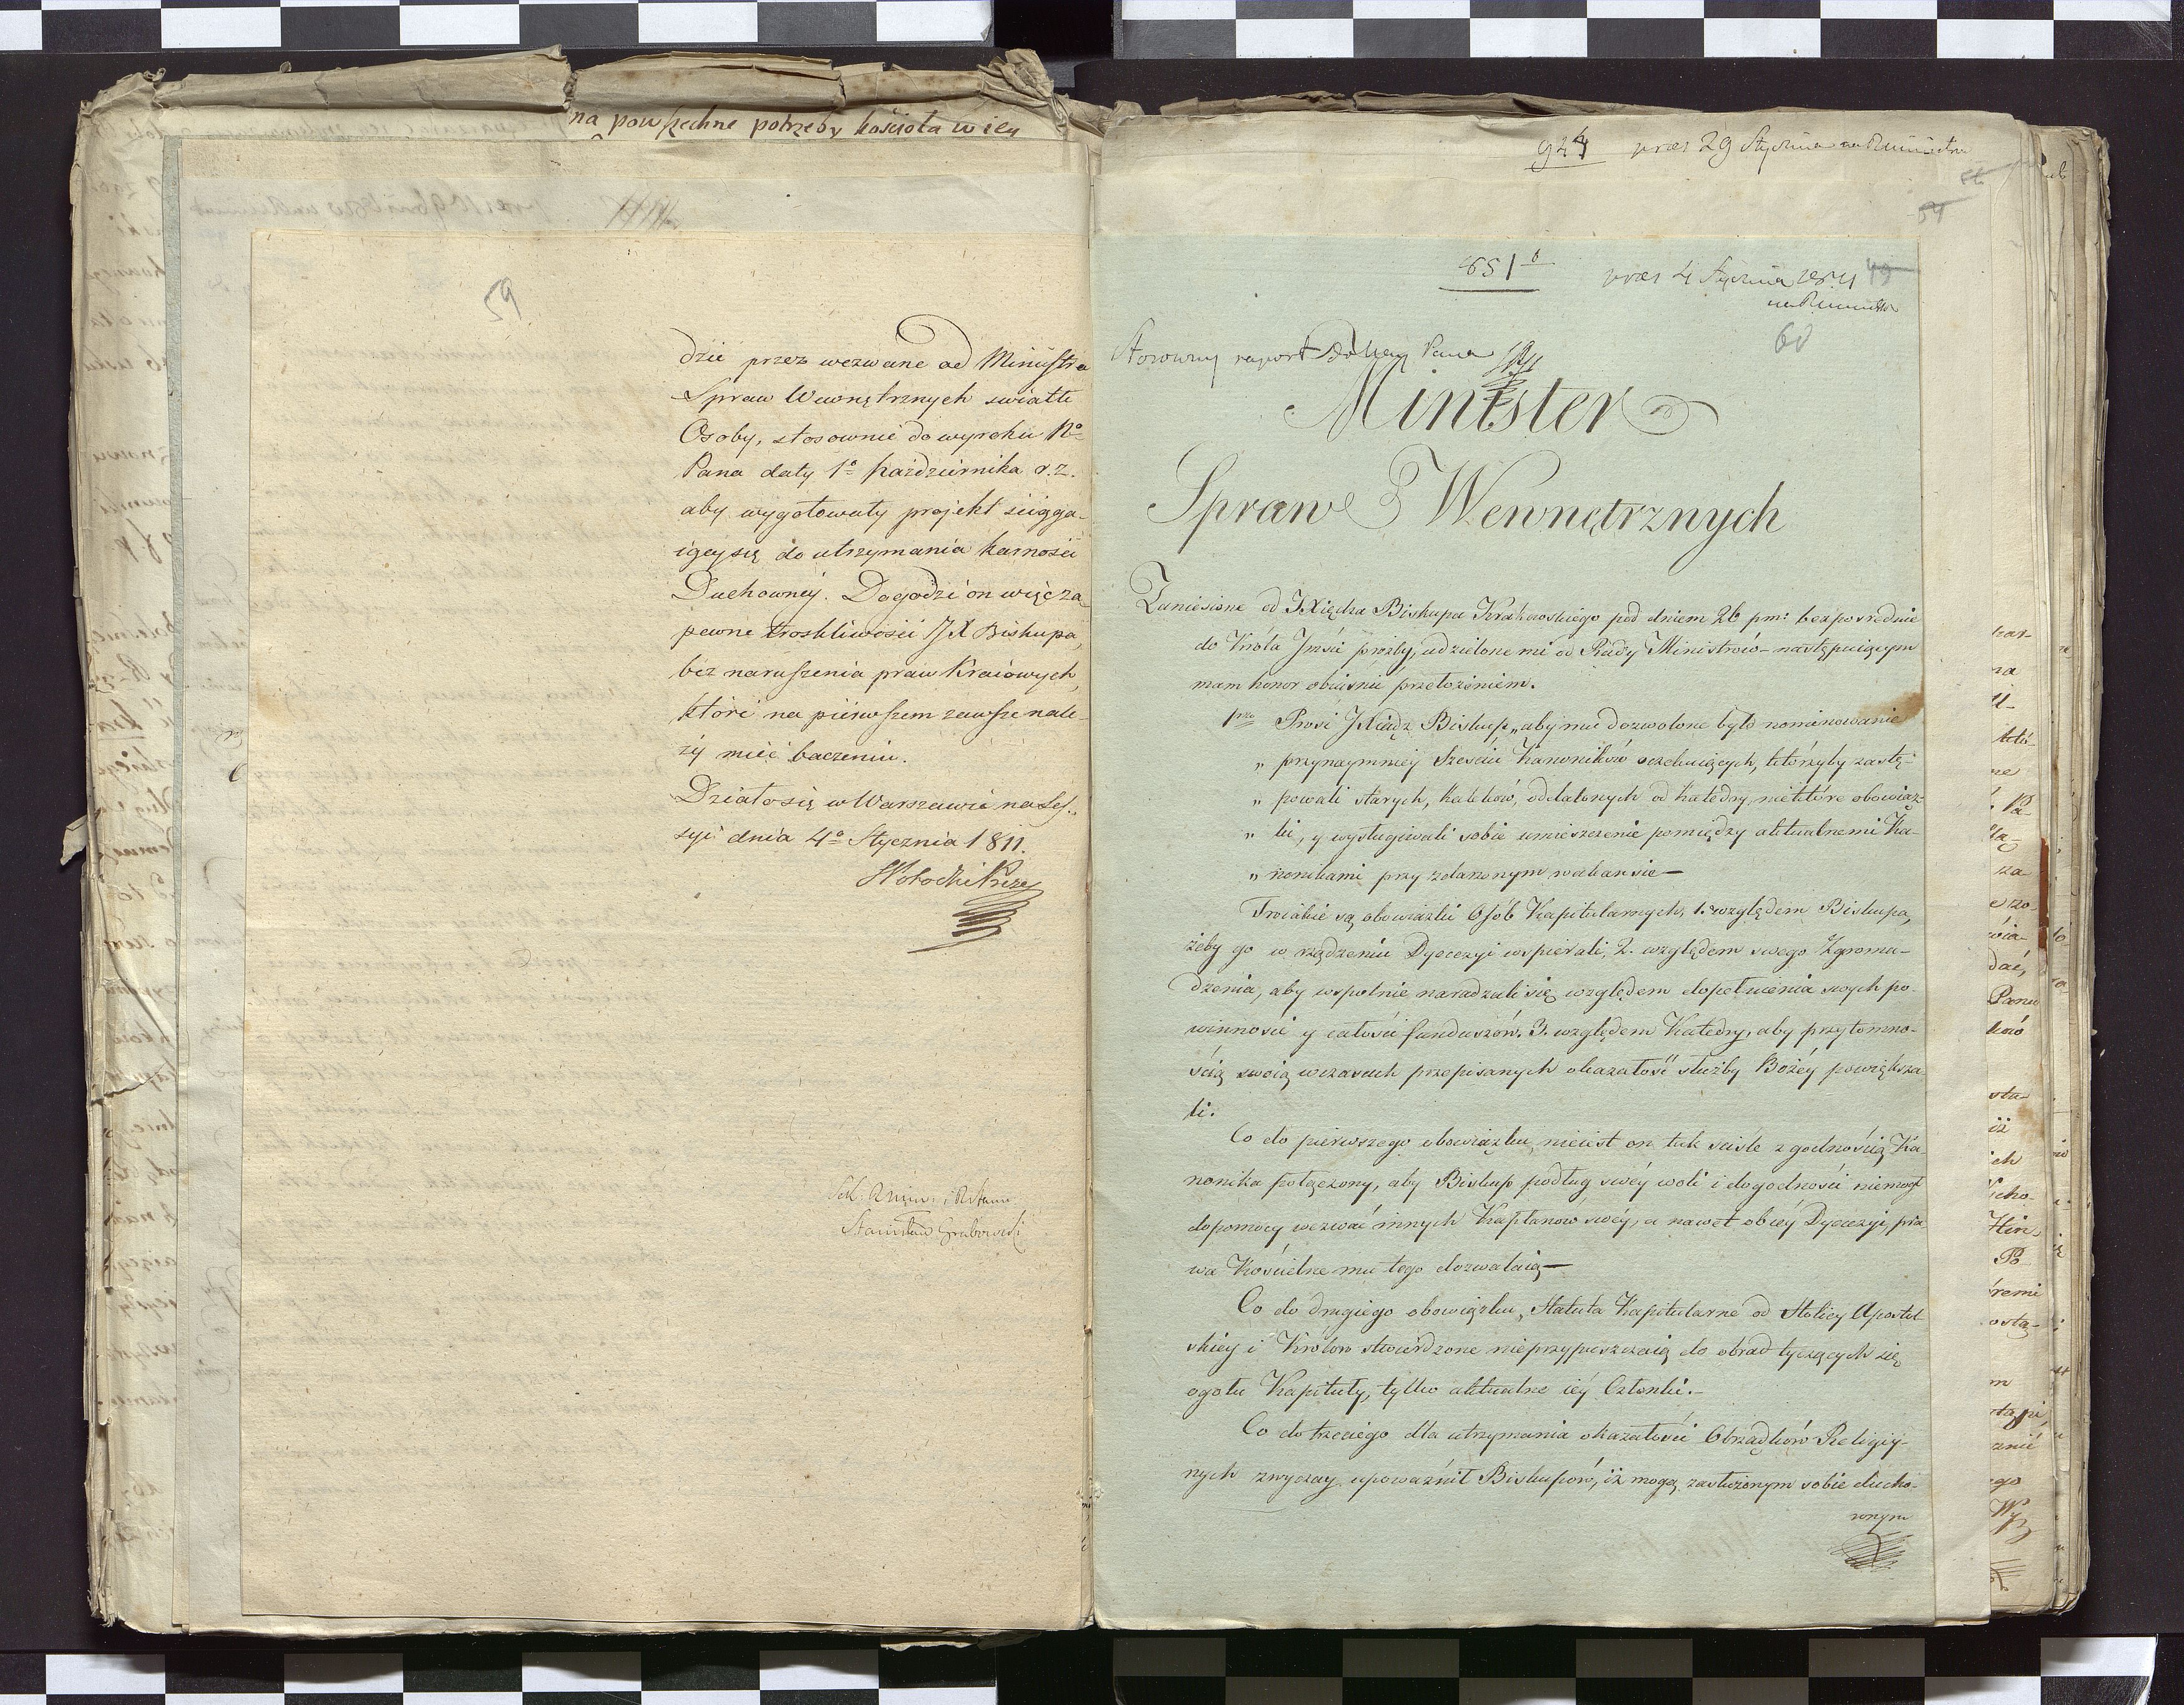 na powszechne potrzeby kościoła w ilu
59
dzie przez wezwane od Ministra
Spraw Wewnętrznych swiatłe
Osoby, stosownie do wyroku No
Pana daty 1o Października r. z.
aby wygotowały projekt sciąga-
iący się do utrzymania karności
Duchowney. Dogodzi on więc za
pewne troskliwości JX Biskupa,
bez naruszenia praw Kraiowych,
które na pierwszem zawsze nale-
ży mieć baczeniu.
Działo się w Warszawie na Ses-
syi dnia 4o Stycznia 1811.
Sek:
Stanisław Grabowski
924 29 Stycznia
54
651 b 4 Stycznia
60
Stosowny raport do Pana
Minister
Spraw Wewnętrznych
Zaniesione od JXiędza Biskupa Krakowskiego pod dniem 26 pm: bezpośrednie
do Króla Jmści prośby, udzielone mi od Rady Ministrów następuiącym
mam honor obiaśnić przełożeniem.
1mo Prosi JXiądz Biskup „aby mu dozwolone było nominowanie
„ przynaymniey sześciu Kanoników oczekuiących, którzyby zastę-
„ powali starych, kaleków, oddalonych od katedry, niektóre obowiąz-
„ ki, y wysługiwali sobie umieszczenie pomiędzy aktualnemi Ka-
„ nonikami przy zdarzonym wakansie —
Troiakie są obowiązki Osób Kapitularnych, 1. względem Biskupa,
żeby go w rządzeniu Dyecezyi wspierali, 2. względem swego Zgroma-
dzenia, aby wspolnie naradzali się względem dopełnienia swych po-
winności y całości funduszów. 3. względem Katedry, aby przytomno-
ścią swoią w czasach przepisanych okazałość służby Bożéy powiększa
li.
Co do pierwszego obowiązku, nieiest on tak sciśle z godnością Ka
nonika połączony, aby Biskup podług swéy woli i dogodności niemógł
do pomocy wezwać innych Kapłanow swéy, a nawet obcéy Dyecezyi, pra
wa Kościelne mu tego dozwalaią —
Co do drugiego obowiązku, Statuta Kapitularne od Stolicy Apostol
skiey i Królow stwierdzone nieprzypuszczaią do obrad tyczących się
ogółu Kapituły, tylko aktualne iéy Członki. —
Co do trzeciego dla utrzymania okazałości Obrządków Religiy-
nych zwyczay upoważnił Biskupów, iż mogą zasłużonym sobie ducho-
wnym